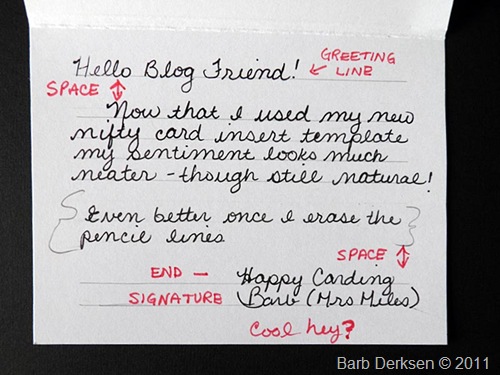 Hello Blog Friend! ← GREETING LINE
SPACE
Now that I used my new
nifty card insert template
my sentiment looks much
neater - though still natural!
Even better once I erase the
pencil lines
SPACE
END — Happy Carding
SIGNATURE Barb (Mrs Miles)
Cool hey?
Barb Derksen © 2011